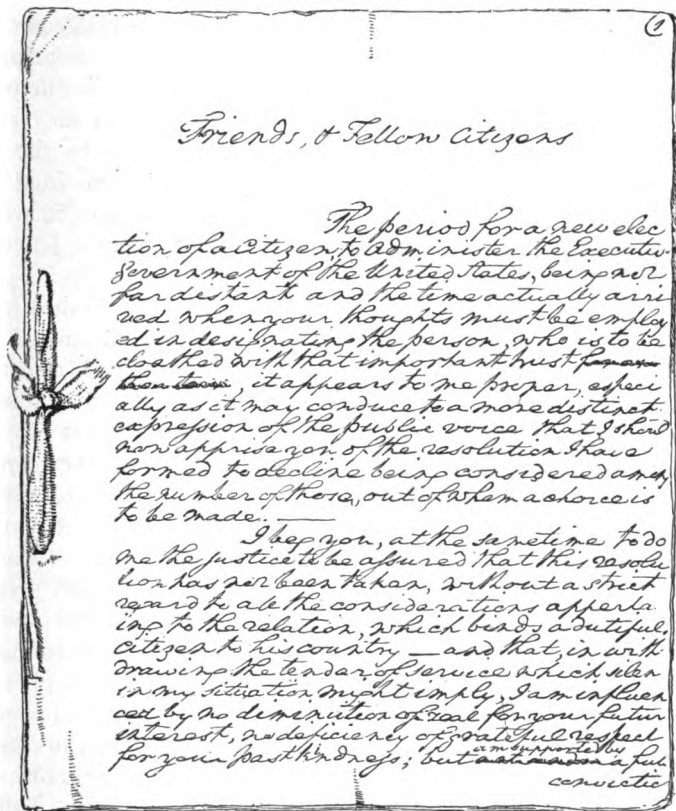 1
Friends, & Fellow Citizens
The period for a new elec
tion of a Citizen, to administer the Executive
government of the United States, being not
far distant and the time actually arri
ved when your thoughts must be employ
ed in designating the person, who is to be
cloathed with that important trust
, it appears to me proper, especi
ally as it may conduce to a more distinct
expression of the public voice that I should
now apprise you of the resolution I have
formed to decline being considered among
the number of those, out of whom a choice is
to be made. —
I beg you, at the same time to do
me the justice to be assured that this resolu
tion has not been taken, without a strict
regard to all the considerations apperta
ing to the relation, which binds a dutiful
Citizen to his country — and that, in with
drawing the tender of service which silen
in my situation might imply, I am influen
ced by no diminution of zeal for your futur
interest, no deficiency of grateful respect
for your past kindness; but am supported by a full
convictio